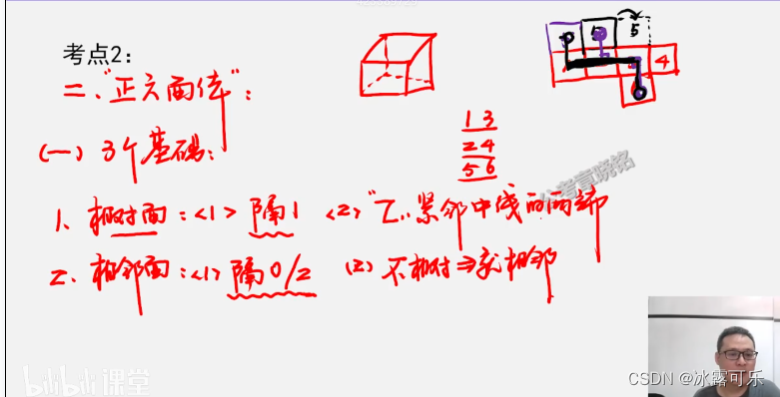 考点2：
二、"正六面体"：
5
4
(一) 3个基础：
13
24
56
公考章晓铭
1、相对面：<1> 隔1 <2> "Z"紧邻中线的两端
2、相邻面：<1> 隔0/2 (2) 不相对⇒就相邻
bilibili课堂
CSDN @冰露可乐